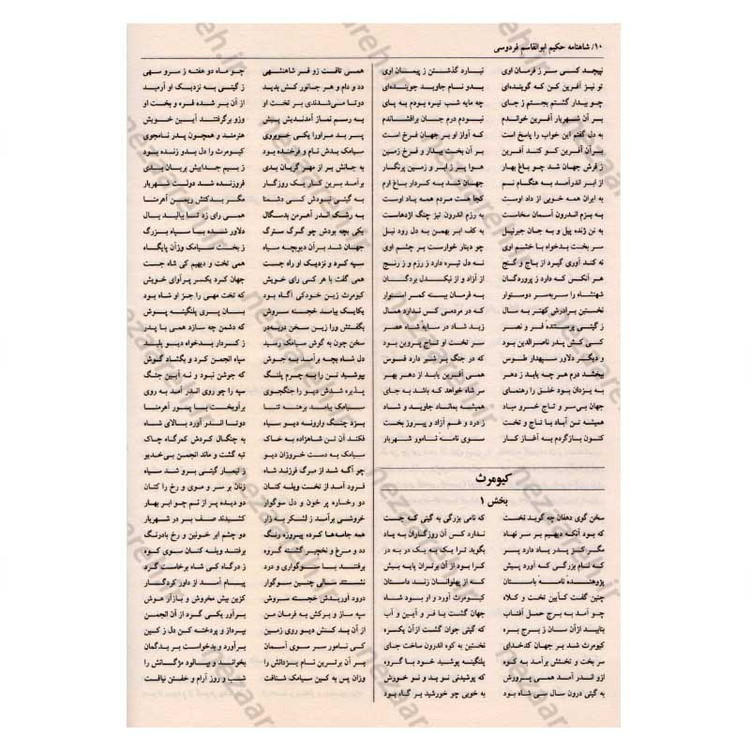 ۱۰/ شاهنامه حکیم ابوالقاسم فردوسی
نپیچد کسی سر ز فرمان اوی نیارد گذشتن ز پیمان اوی
تو نیز آفرین کن که گوینده‌ای بدو نام جاوید جوینده‌ای
چو بیدار گشتم بجستم ز جای چه مایه شب تیره بودم به پای
بر آن شهریار آفرین خواندم نبودم درم جان برافشاندم
به دل گفتم این خواب را پاسخ است که آواز او بر جهان فرخ است
بر آن آفرین کو کند آفرین بر آن بخت بیدار و فرخ زمین
ز فرش جهان شد چو باغ بهار هوا پر ز ابر و زمین پرنگار
از ابر اندرآمد به هنگام نم جهان شد به کردار باغ ارم
به ایران همه خوبی از داد اوست کجا هست مردم همه یاد اوست
به بزم اندرون آسمان سخاست به رزم اندرون تیز چنگ اژدهاست
به تن ژنده پیل و به جان جبرئیل به کف ابر بهمن به دل رود نیل
سر بخت بدخواه با خشم اوی چو دینار خوارست بر چشم اوی
نه کند آوری گیرد از باج و گنج نه دل تیره دارد ز رزم و ز رنج
هر آنکس که دارد ز پروردگان از آزاد و از نیکدل بردگان
شهنشاه را سربه‌سر دوستوار به فرمان ببسته کمر استوار
نخستین برادرش کهتر به سال که در مردمی کس ندارد همال
ز گیتی پرستنده فر و نصر زید شاد در سایه شاه عصر
کسی کش پدر ناصرالدین بود سر تخت او تاج پروین بود
و دیگر دلاور سپهدار طوس که در جنگ بر شیر دارد فسوس
ببخشد درم هر چه یابد ز دهر همی آفرین یابد از دهر بهر
به یزدان بود خلق را رهنمای سر شاه خواهد که باشد به جای
جهان بی‌سر و تاج خسرو مباد همیشه بماناد جاوید و شاد
همیشه تن آباد با تاج و تخت ز درد و غم آزاد و پیروز بخت
کنون بازگردم به آغاز کار سوی نامه نامور شهریار
کیومرث
بخش ۱
سخن گوی دهقان چه گوید نخست که نامی بزرگی به گیتی که جست
که بود آنکه دیهیم بر سر نهاد ندارد کس آن روزگاران به یاد
مگر کز پدر یاد دارد پسر بگوید ترا یک به یک در به در
که نام بزرگی که آورد پیش که را بود از آن برتران پایه بیش
پژوهنده نامه باستان که از پهلوانان زند داستان
چنین گفت کآیین تخت و کلاه کیومرث آورد و او بود شاه
چو آمد به برج حمل آفتاب جهان گشت با فر و آیین و آب
بتابید ازآن سان ز برج بره که گیتی جوان گشت ازآن یکره
کیومرث شد بر جهان کدخدای نخستین به کوه اندرون ساخت جای
سر بخت و تختش برآمد به کوه پلنگینه پوشید خود با گروه
ازو اندر آمد همی پرورش که پوشیدنی نو بد و نو خورش
به گیتی درون سال سی شاه بود به خوبی چو خورشید بر گاه بود
همی تافت زو فر شاهنشهی چو ماه دو هفته ز سرو سهی
دد و دام و هر جانور کش بدید ز گیتی به نزدیک او آرمید
دوتا می‌شدندی بر تخت او از آن بر شده فره و بخت او
به رسم نماز آمدندیش پیش وزو برگرفتند آیین خویش
پسر بد مراورا یکی خوبروی هنرمند و همچون پدر نامجوی
سیامک بدش نام و فرخنده بود کیومرث را دل بدو زنده بود
به جانش بر از مهر گریان بدی ز بیم جداییش بریان بدی
برآمد برین کار یک روزگار فروزنده شد دولت شهریار
به گیتی نبودش کسی دشمنا مگر بدکنش ریمن آهرمنا
به رشک اندر آهرمن بدسگال همی رای زد تا ببالید بال
یکی بچه بودش چو گرگ سترگ دلاور شده با سپاه بزرگ
جهان شد بر آن دیوبچه سیاه ز بخت سیامک وزآن پایگاه
سپه کرد و نزدیک او راه جست همی تخت و دیهیم کی شاه جست
همی گفت با هر کسی رای خویش جهان کرد یکسر پرآوای خویش
کیومرث زین خودکی آگاه بود که تخت مهی را جز او شاه بود
یکایک بیامد خجسته سروش بسان پری پلنگینه پوش
بگفتش ورا زین سخن دربه‌در که دشمن چه سازد همی با پدر
سخن چون به گوش سیامک رسید ز کردار بدخواه دیو پلید
دل شاه بچه برآمد به جوش سپاه انجمن کرد و بگشاد گوش
بپوشید تن را به چرم پلنگ که جوشن نبود و نه آیین جنگ
پذیره شدش دیو را جنگجوی سپه را چو روی اندر آمد به روی
سیامک بیامد برهنه تنا برآویخت با پور آهرمنا
بزد چنگ وارونه دیو سیاه دوتا اندر آورد بالای شاه
فکند آن تن شاهزاده به خاک به چنگال کردش کمرگاه چاک
سیامک به دست خروزان دیو تبه گشت و ماند انجمن بی‌خدیو
چو آگه شد از مرگ فرزند شاه ز تیمار گیتی برو شد سیاه
فرود آمد از تخت ویله کنان زنان بر سر و موی و رخ را کنان
دو رخساره پر خون و دل سوگوار دو دیده پر از نم چو ابر بهار
خروشی برآمد ز لشکر به زار کشیدند صف بر در شهریار
همه جامه‌ها کرده پیروزه رنگ دو چشم ابر خونین و رخ بادرنگ
دد و مرغ و نخچیر گشته گروه برفتند ویله کنان سوی کوه
برفتند با سوگواری و درد ز درگاه کی شاه برخاست گرد
نشستند سالی چنین سوگوار پیام آمد از داور کردگار
درود آوریدش خجسته سروش کزین بیش مخروش و بازآر هوش
سپه ساز و برکش به فرمان من برآور یکی گرد از آن انجمن
از آن بد کنش دیو روی زمین بپرداز و پردخته کن دل ز کین
کی نامور سر سوی آسمان برآورد و بدخواست بر بدگمان
بر آن برترین نام یزدانش را بخواند و بپالود مژگانش را
وزان پس به کین سیامک شتافت شب و روز آرام و خفتن نیافت